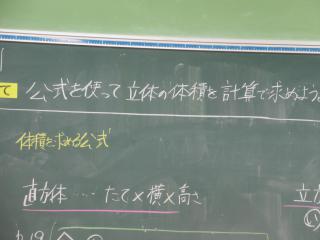 て 公式を使って立体の体積を計算で求めよう。
体積を求める公式
直方体 …… たて×横×高さ
立方
p.19